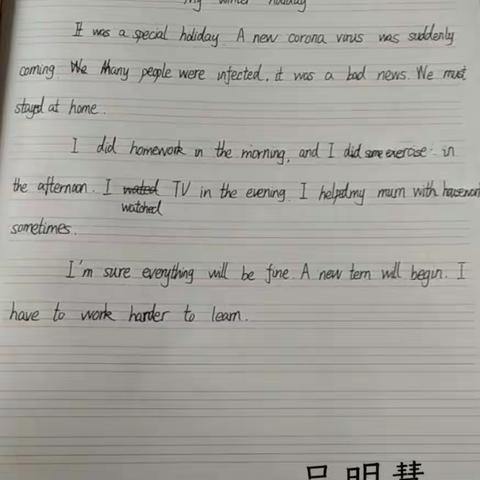 My winter holiday
It was a special holiday. A new corona virus was suddenly
coming. We Many people were infected, it was a bad news. We must
stayed at home.
I did homework in the morning, and I did some exercise in
the afternoon. I wated TV in the evening. I helped my mum with housework
watched
sometimes.
I'm sure everything will be fine. A new term will begin. I
have to work harder to learn.
吕明慧